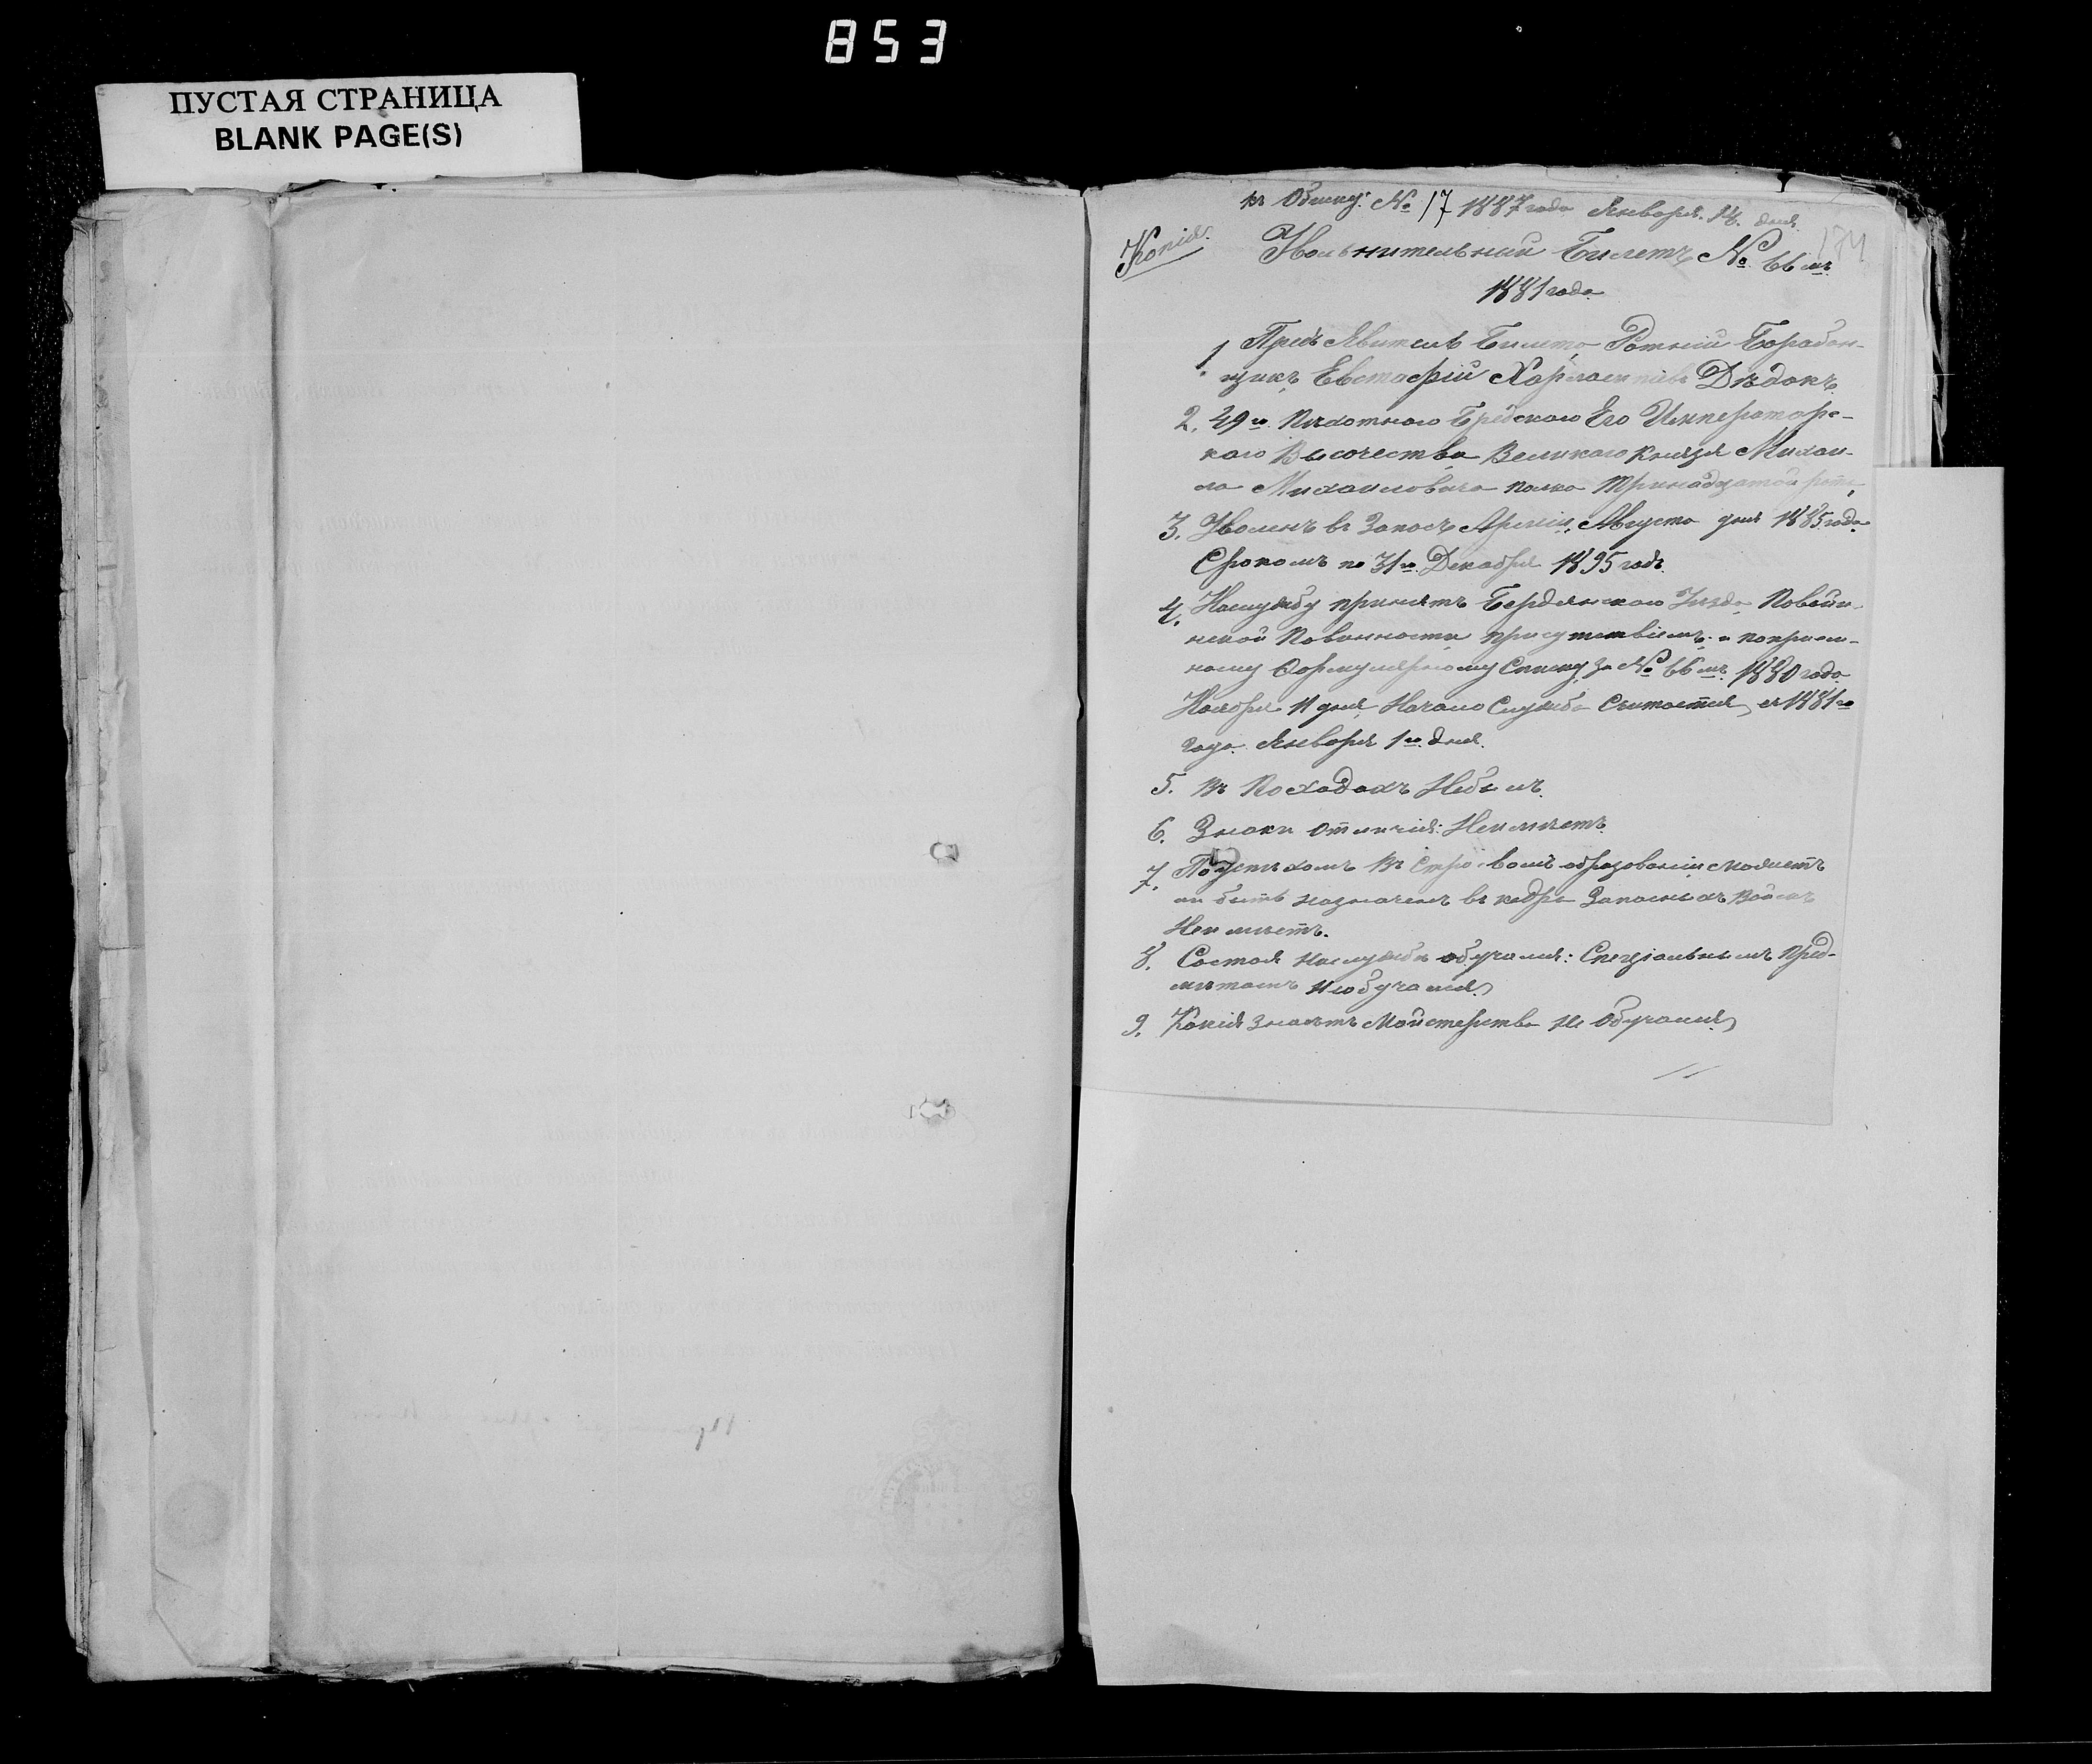 853
ПУСТАЯ СТРАНИЦА
BLANK PAGE(S)
къ Обыску: № 17 1887 года Января. 14. дня.
174
Копія.
Увольнительний Билетъ № 66мъ
1881 года
1. Предъявитель Билета Ротний Барабан-
щикъ Евстафій Дѣдокъ
2. 49го Пѣхотнаго Брестскаго Его Императорс-
каго Высочества Великаго Князя Михаи-
ла Михаиловича полка тринадцатой роти,
3. Уволенъ въ Запасъ Арміи, Августа дня 1885 года
Срокомъ по 31го Декабря 1895 годъ.
4. Наслужбу принятъ Бердянскаго Уѣзда Повоин-
ской Повинности присутствіемъ: и поприем-
ному Формулярному Списку за № 66мъ 1880 года
Ноября 11 дня, Начало Служби Считается съ 1881го
года Января 1го дня.
5. Въ Походахъ Небылъ.
6. Знаки отличія: Неимѣетъ.
7. Поуспѣхамъ Въ Строевомъ образованіи можетъ
ли быть назначенъ въ кадры Запасныхъ Войскъ
Неимѣетъ.
8. Состоя наслужбѣ обучался: Спеціальнымъ пред-
мѣтамъ Необучался
9. Какія знаетъ Майстерства Не Обучался